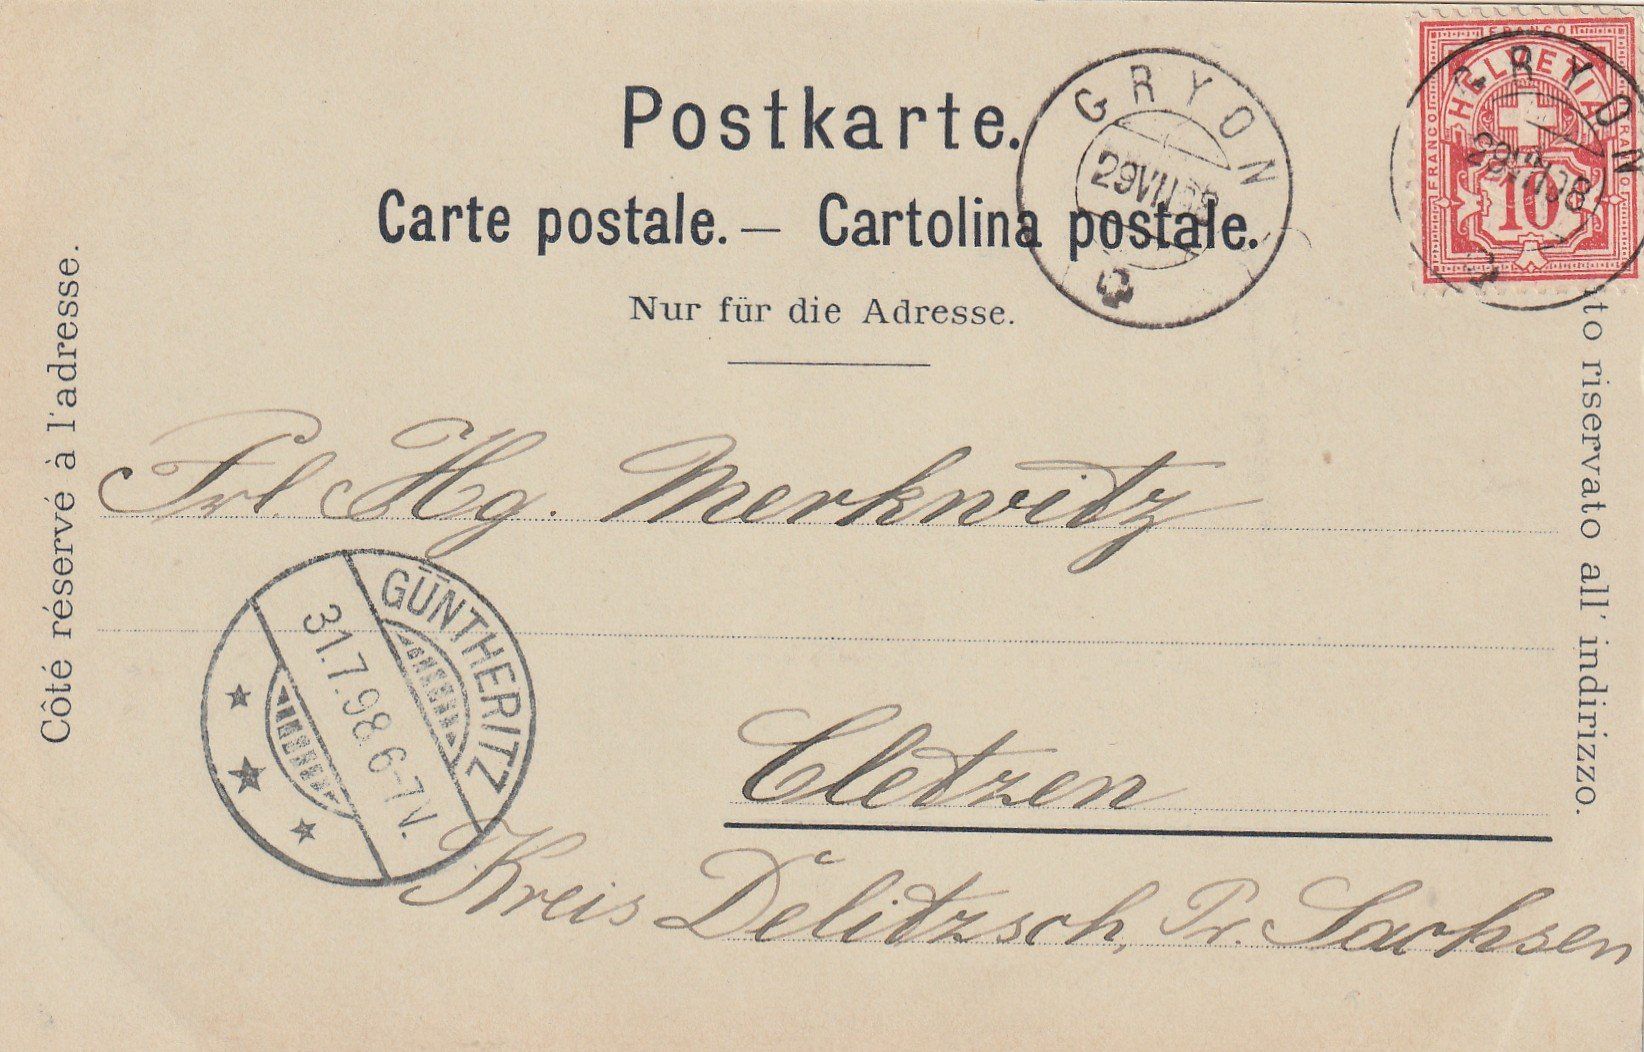 Postkarte.
Carte postale. — Cartolina postale.
Nur für die Adresse.
Côté réservé à l'adresse.
to riservato all' indirizzo.
GRYON
29 VII 98
FRANCO
HELVETIA
FRANCO
FRANCO
10
GRYON
29 VII 98
Frl. Hg. Merkwitz
GÜNTHERITZ
31.7.98.6-7V.
Cletzen
Kreis Delitzsch, Pr. Sachsen